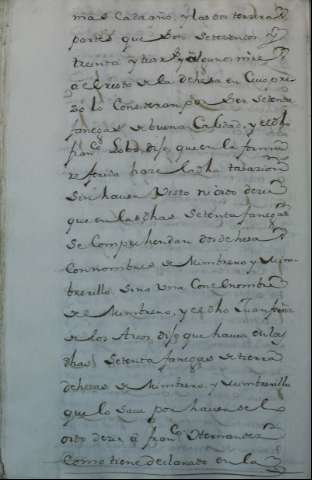 mas Cada año, y las dos terçera
partes que son setecientos
treinta y tres
el resto de la dehesa en Cuio pre
sio lo Consideran por ser setenta
fanegas de buena Calidad, y el dho
franco. Lobo, dijo, que en la forma
referida haze la dha tazazion
sin haver visto ni oido dezir
que en las dhas setenta fanegas
se Comprehendan dos dehesas
Con nombres de Mimbreno, y Mim-
brenillo, sino una Con el nombre
de el Mimbreno, y el dho Juan franco
de los Arcos, dijo que havia en las
dhas setenta fanegas de tierra
dehesas de Mimbreno, y Mimbrenillo
que lo save por haverselo
oido dezir a franco. Hernandez
Como tiene declarado en la